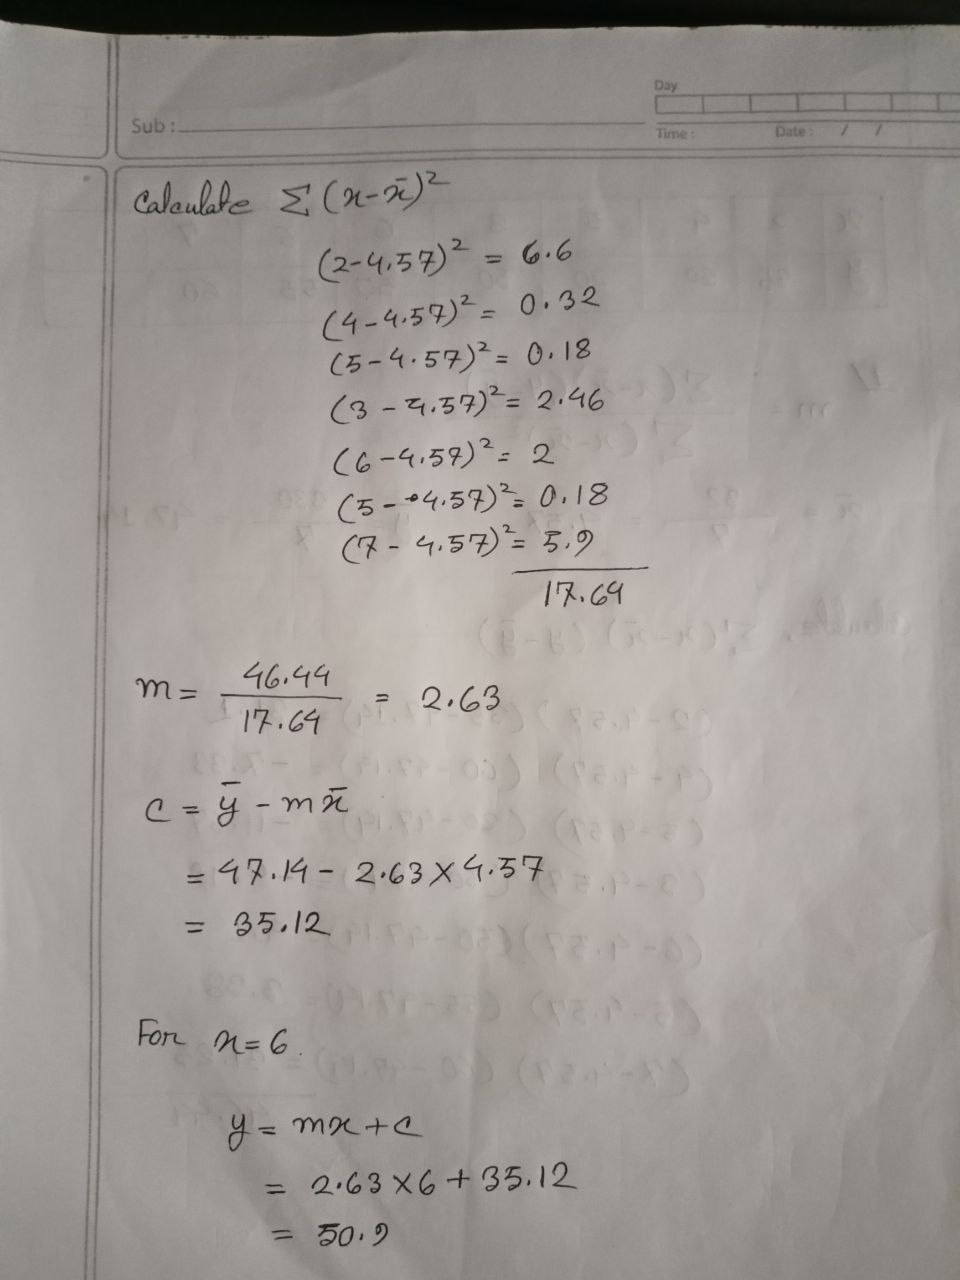 Day
Sub :
Time : Date : / /
Calculate Σ (x-x̄)²
(2-4.57)² = 6.6
(4-4.57)² = 0.32
(5-4.57)² = 0.18
(3-4.57)² = 2.46
(6-4.57)² = 2
(5-4.57)² = 0.18
(7-4.57)² = 5.9
17.64
m = 46.44 / 17.64 = 2.63
c = ȳ - m x̄
= 47.14 - 2.63 × 4.57
= 35.12
For x=6.
y = mx+c
= 2.63 × 6 + 35.12
= 50.9